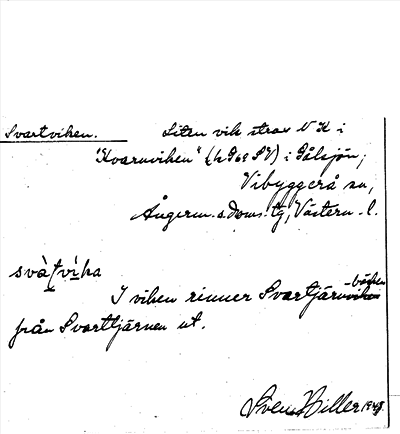 Svartviken. Liten vik strax N K i
"Kvarnviken" (h9d62SV) i Gålsjön;
Vibyggerå sn,
Ångerm. s. doms. tg, Västern. l.
svàtvìka
I viken rinner Svartjärn-bäcken
från Svarttjärnen ut.
Sven Hiller 1948.